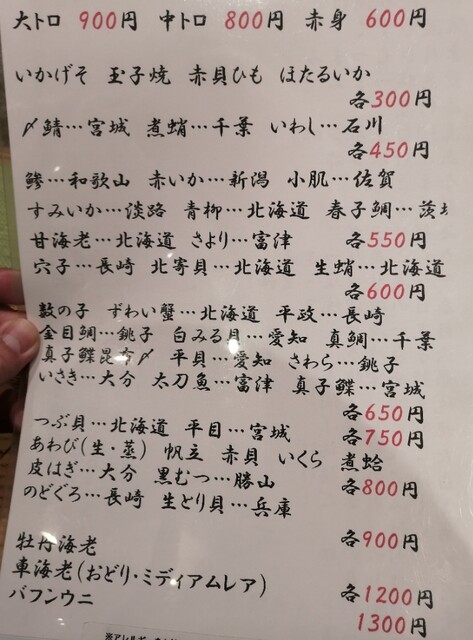 大トロ 900円 中トロ 800円 赤身 600円
いかげそ 玉子焼 赤貝ひも ほたるいか
各300円
〆鯖…宮城 煮蛸…千葉 いわし…石川
各450円
鯵…和歌山 赤いか…新潟 小肌…佐賀
すみいか…淡路 青柳…北海道 春子鯛…茨
甘海老…北海道 さより…富津 各550円
穴子…長崎 北寄貝…北海道 生蛸…北海道
各600円
数の子 ずわい蟹…北海道 平政…長崎
金目鯛…銚子 白みる貝…愛知 真鯛…千葉
真子鰈昆布〆 平貝…愛知 さわら…銚子
いさき…大分 太刀魚…富津 真子鰈…宮城
各650円
つぶ貝…北海道 平目…宮城 各750円
あわび(生・蒸) 帆立 赤貝 いくら 煮蛤
皮はぎ…大分 黒むつ…勝山 各800円
のどぐろ…長崎 生とり貝…兵庫
各900円
牡丹海老
車海老(おどり・ミディアムレア) 各1200円
バフンウニ 1300円